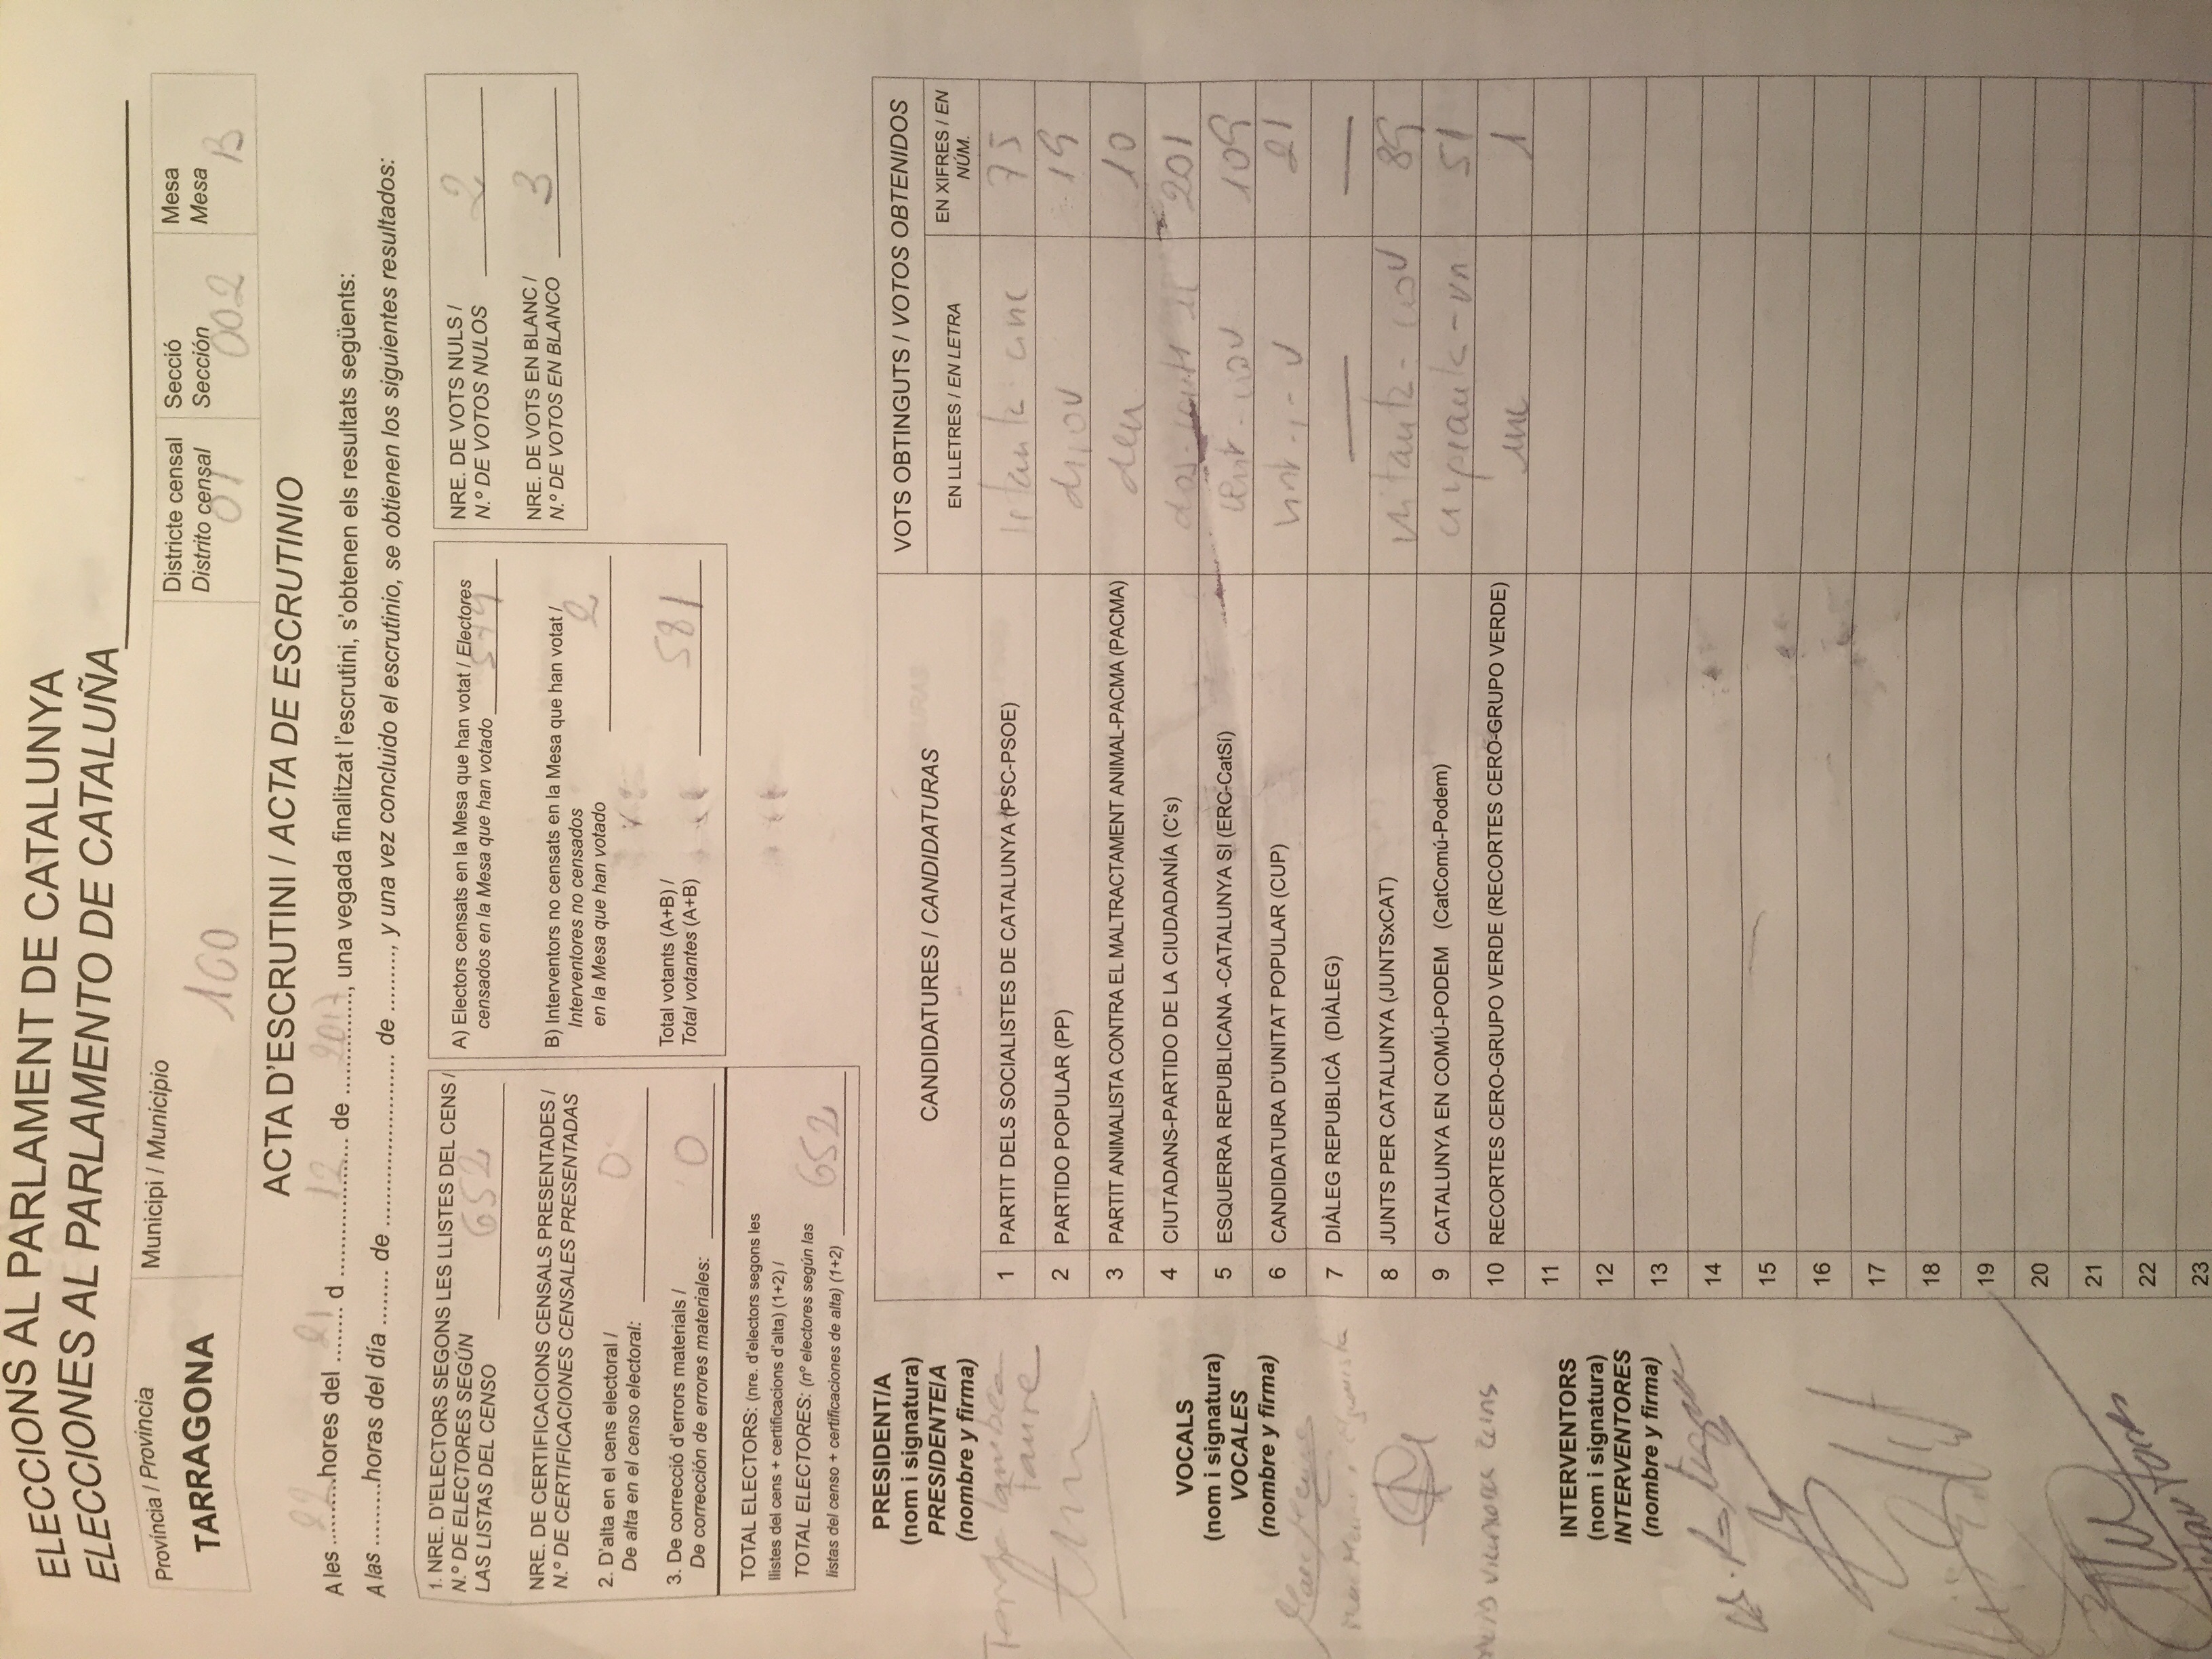 ELECCIONS AL PARLAMENT DE CATALUNYA
ELECCIONES AL PARLAMENTO DE CATALUÑA
Província / Provincia
TARRAGONA
Municipi / Municipio
160
Districte censal
Distrito censal
01
Secció
Sección
002
Mesa
Mesa
B
ACTA D'ESCRUTINI / ACTA DE ESCRUTINIO
A les 22 hores del 21 d 12 de 2017, una vegada finalitzat l'escrutini, s'obtenen els resultats següents:
A las .........horas del día ........ de ........................ de ........., y una vez concluido el escrutinio, se obtienen los siguientes resultados:
1. NRE. D'ELECTORS SEGONS LES LLISTES DEL CENS /
N.º DE ELECTORES SEGÚN
LAS LISTAS DEL CENSO 652
NRE. DE CERTIFICACIONS CENSALS PRESENTADES /
N.º DE CERTIFICACIONES CENSALES PRESENTADAS
2. D'alta en el cens electoral /
De alta en el censo electoral: 0
3. De correcció d'errors materials /
De corrección de errores materiales: 0
TOTAL ELECTORS: (nre. d'electors segons les
llistes del cens + certificacions d'alta) (1+2) /
TOTAL ELECTORES: (nº electores según las
listas del censo + certificaciones de alta) (1+2) 652
A) Electors censats en la Mesa que han votat / Electores
censados en la Mesa que han votado 579
B) Interventors no censats en la Mesa que han votat /
Interventores no censados
en la Mesa que han votado 2
Total votants (A+B) /
Total votantes (A+B) 581
NRE. DE VOTS NULS /
N.º DE VOTOS NULOS 2
NRE. DE VOTS EN BLANC /
N.º DE VOTOS EN BLANCO 3
PRESIDENT/A
(nom i signatura)
PRESIDENTE/A
(nombre y firma)
Faure
VOCALS
(nom i signatura)
VOCALES
(nombre y firma)
INTERVENTORS
(nom i signatura)
INTERVENTORES
(nombre y firma)
CANDIDATURES / CANDIDATURAS
VOTS OBTINGUTS / VOTOS OBTENIDOS
EN LLETRES / EN LETRA
EN XIFRES / EN
NÚM.
1 PARTIT DELS SOCIALISTES DE CATALUNYA (PSC-PSOE) setanta cinc 75
2 PARTIDO POPULAR (PP) dinou 19
3 PARTIT ANIMALISTA CONTRA EL MALTRACTAMENT ANIMAL-PACMA (PACMA) deu 10
4 CIUTADANS-PARTIDO DE LA CIUDADANÍA (C's) dos-cents 201
5 ESQUERRA REPUBLICANA -CATALUNYA SI (ERC-CatSí) cent-nou 109
6 CANDIDATURA D'UNITAT POPULAR (CUP) vint-i-u 21
7 DIÀLEG REPUBLICÀ (DIÀLEG) — —
8 JUNTS PER CATALUNYA (JUNTSxCAT) vitanta-nou 89
9 CATALUNYA EN COMÚ-PODEM (CatComú-Podem) cinquanta-un 51
10 RECORTES CERO-GRUPO VERDE (RECORTES CERO-GRUPO VERDE) un 1
11
12
13
14
15
16
17
18
19
20
21
22
23